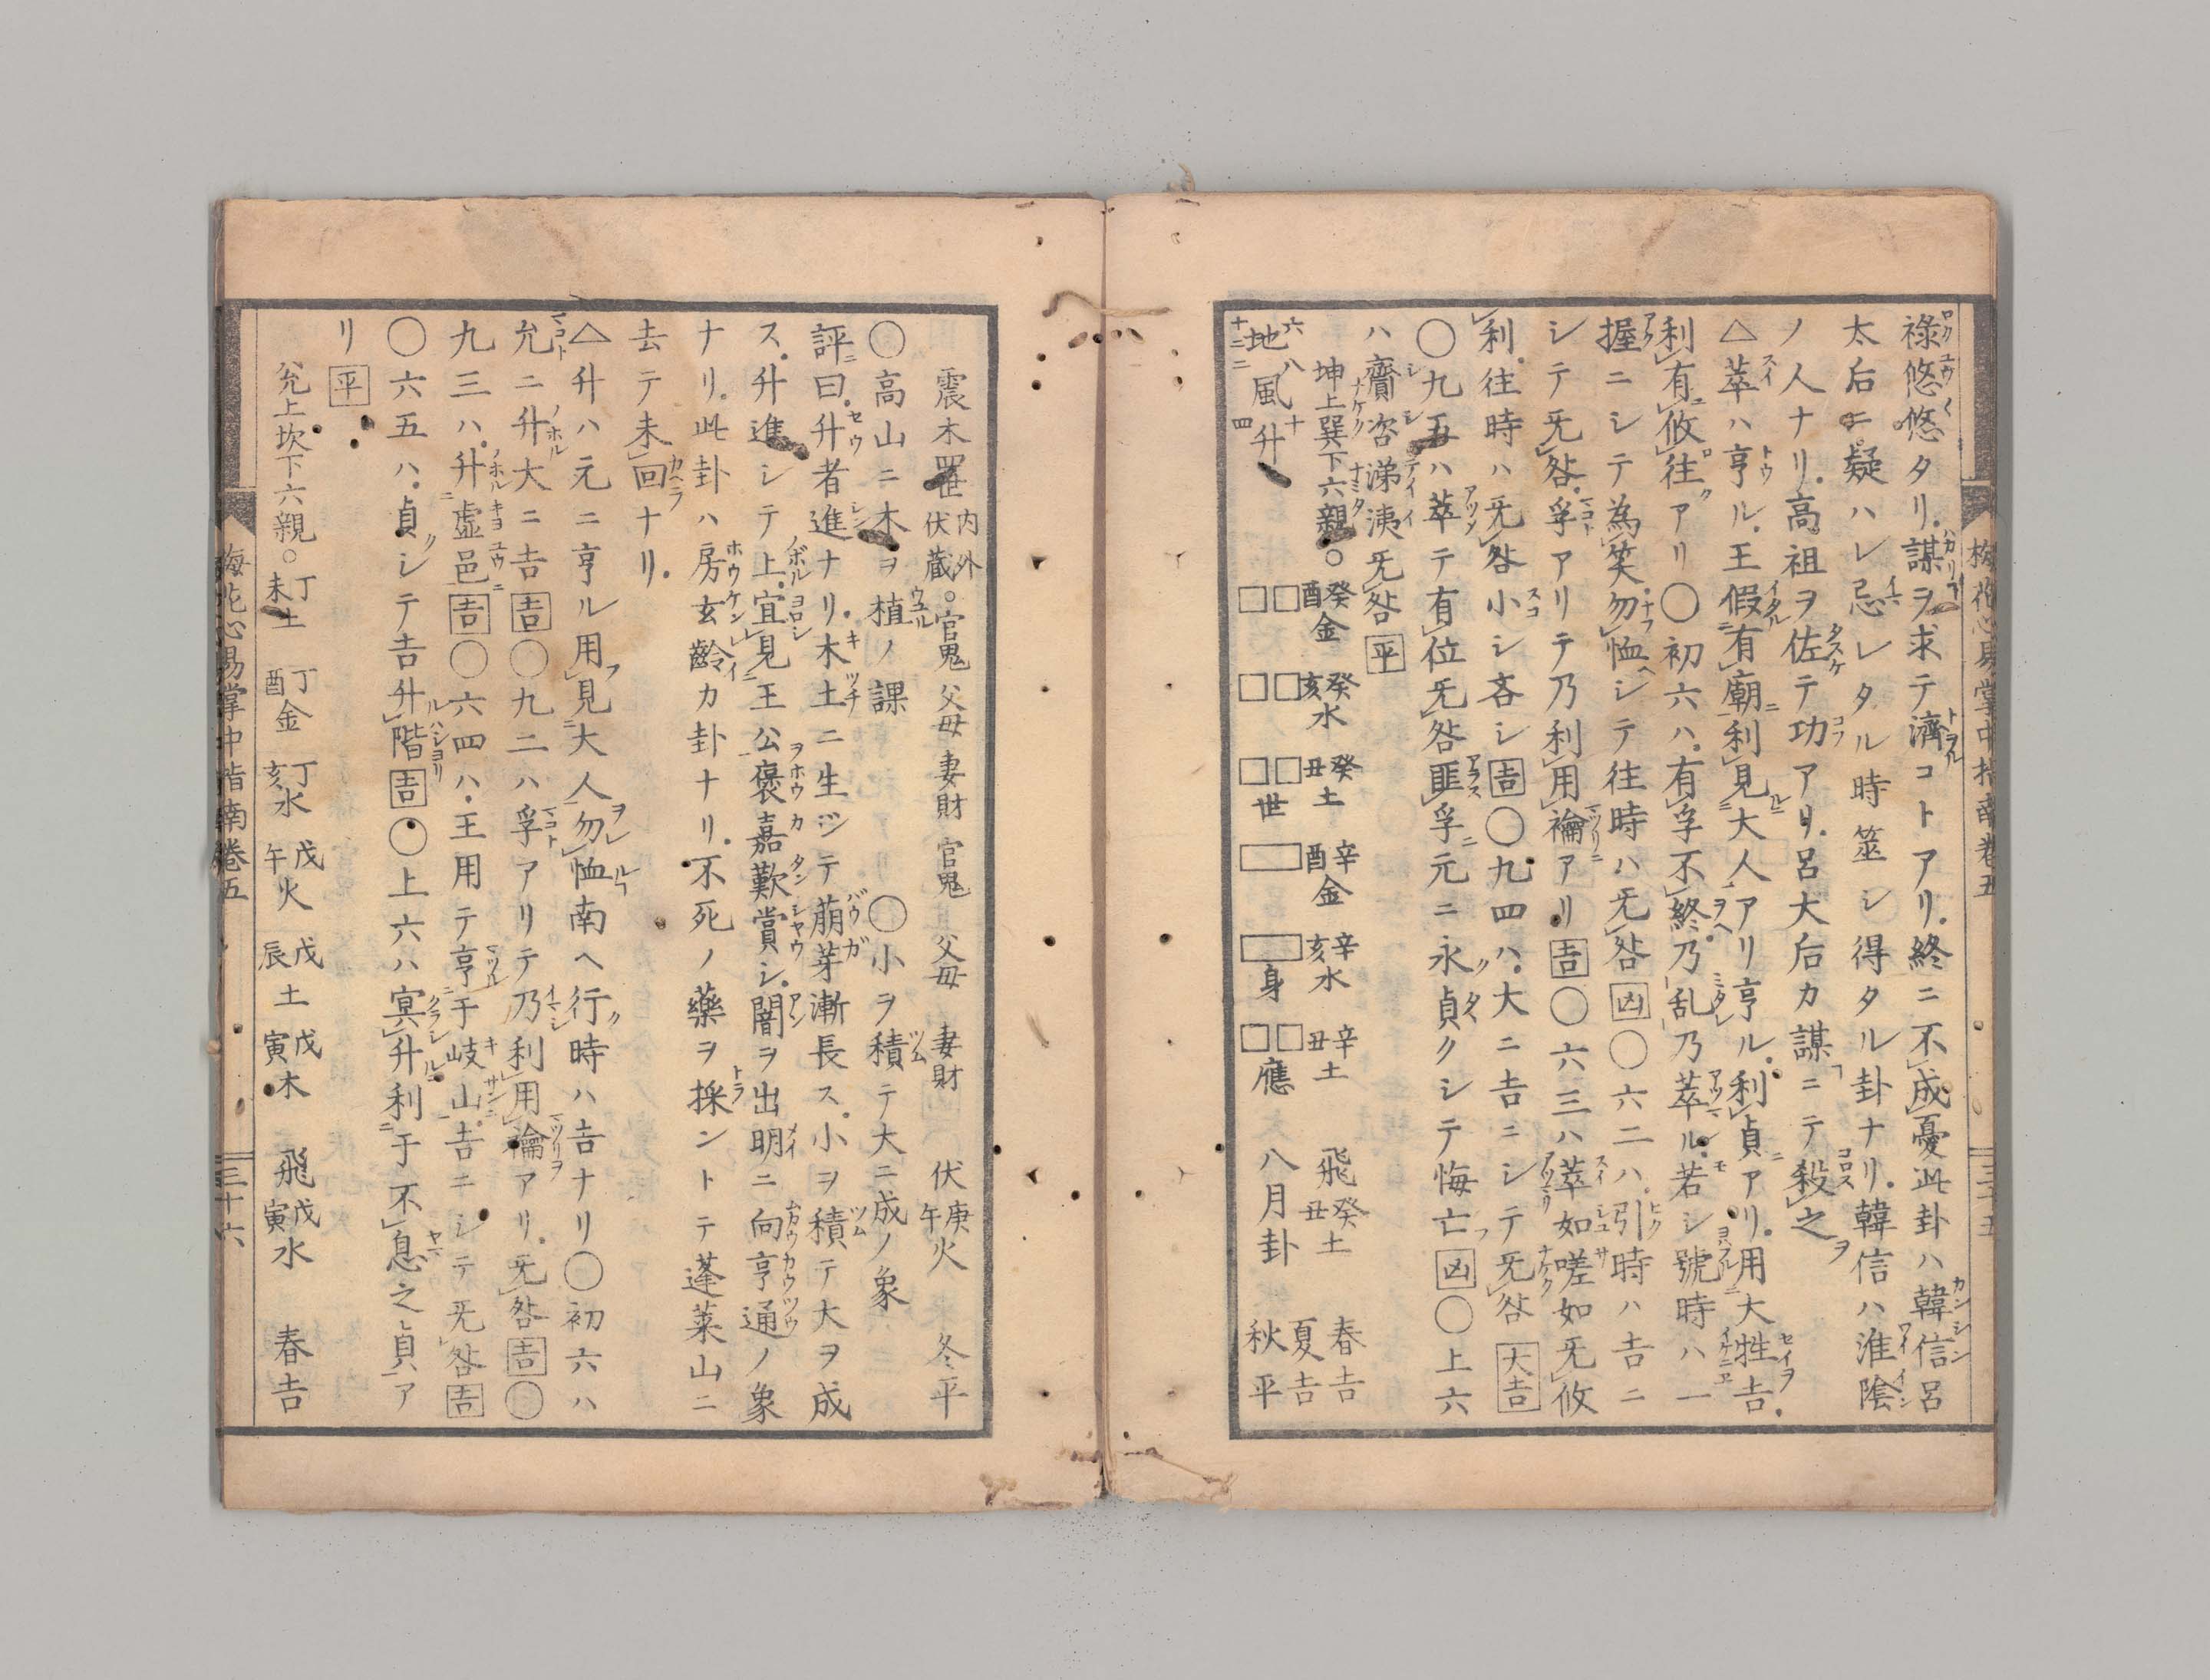 祿悠悠タリ謀ヲ求テ濟コトアリ終ニ不成憂此卦ハ韓信呂
太后ニ疑ハレ忌レタル時筮シ得タル卦ナリ韓信ハ淮陰
ノ人ナリ高祖ヲ佐テ功アリ呂大后カ謀ニテ殺之
△萃ハ亨ル王假有廟利見大人アリ亨ル利貞アリ用大牲吉
利有攸往アリ〇初六ハ有孚不終乃乱乃萃ル若シ號時ハ一
握ニシテ為笑勿恤シテ往時ハ无咎凶〇六二ハ引時ハ吉ニ
シテ无咎孚アリテ乃利用禴アリ吉〇六三ハ萃如嗟如无攸
利往時ハ无咎小シ吝シ吉〇九四ハ大ニ吉ニシテ无咎大吉
〇九五ハ萃テ有位无咎匪孚元ニ永貞クシテ悔亡凶〇上六
ハ齎咨涕洟无咎平
坤上巽下六親〇癸酉金 癸亥水 癸丑土 辛酉金 辛亥水 辛丑土 飛癸丑土 春吉
六八十
地風升 世 身 應 八月卦 夏吉 秋平
十二二 四
梅花心易掌中指南卷五 三十五
震木 内外伏蔵。官鬼 父母 妻財 官鬼 父母 妻財 伏庚午火 冬平
〇高山ニ木ヲ植ノ課 〇小ヲ積テ大ニ成ノ象
評曰升者進ナリ木土ニ生シテ萠芽漸長ス小ヲ積テ大ヲ成
ス升進シテ上宜見王公褒嘉歎賞シ闇ヲ出明ニ向亨通ノ象
ナリ此卦ハ房玄齡カ卦ナリ不死ノ藥ヲ採ントテ蓬莱山ニ
去テ未回ナリ
△升ハ元ニ亨ル用見大人勿恤南ヘ行時ハ吉ナリ〇初六ハ
允ニ升大ニ吉吉〇九二ハ孚アリテ乃利用禴アリ无咎吉〇
九三ハ升虚邑吉〇六四ハ王用テ亨于岐山吉ニシテ无咎吉
〇六五ハ貞シテ吉升階吉〇上六ハ冥升利于不息之貞ア
リ平
兊上坎下六親。丁未土 丁酉金 丁亥水 戊午火 戊辰土 戊寅木 飛戊寅水 春吉
梅花心易掌中指南卷五 三十六